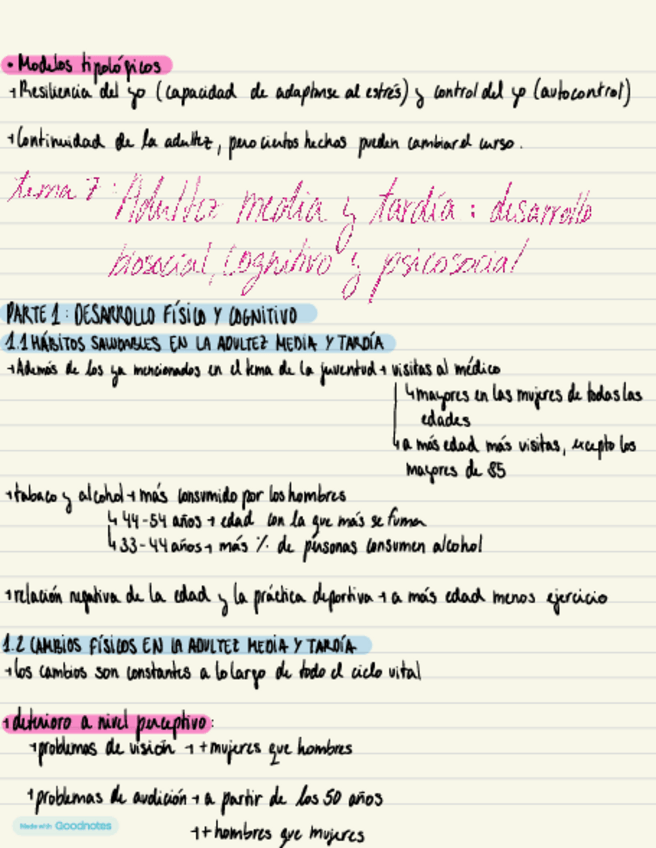 • Modelos tipológicos
→ Resiliencia del yo (capacidad de adaptarse al estrés) y control del yo (autocontrol)
→ Continuidad de la adultez, pero ciertos hechos pueden cambiar el curso.
tema 7: Adultez media y tardía: desarrollo
biosocial, cognitivo y psicosocial
PARTE 1: DESARROLLO FÍSICO Y COGNITIVO
1.1 HÁBITOS SALUDABLES EN LA ADULTEZ MEDIA Y TARDÍA
→ Además de los ya mencionados en el tema de la juventud → visitas al médico
↳ mayores en las mujeres de todas las
edades
↳ a más edad más visitas, excepto los
mayores de 85
→ tabaco y alcohol → más consumido por los hombres
↳ 44-54 años → edad con la que más se fuma
↳ 33-44 años → más % de personas consumen alcohol
→ relación negativa de la edad y la práctica deportiva → a más edad menos ejercicio
1.2 CAMBIOS FÍSICOS EN LA ADULTEZ MEDIA Y TARDÍA
→ los cambios son constantes a lo largo de todo el ciclo vital
→ deterioro a nivel perceptivo:
→ problemas de visión → + mujeres que hombres
→ problemas de audición → a partir de los 50 años
→ + hombres que mujeres
Made with Goodnotes